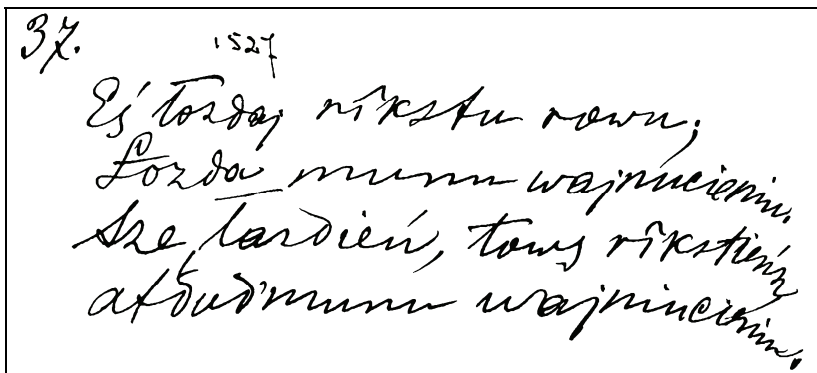 37.
1527
Eś łozdaj rîkstu rowu;
Łozda munu wajnucieniu.
Sze, łazdień, towŭ rîkstień,
atdud' munu wajniucieniu.